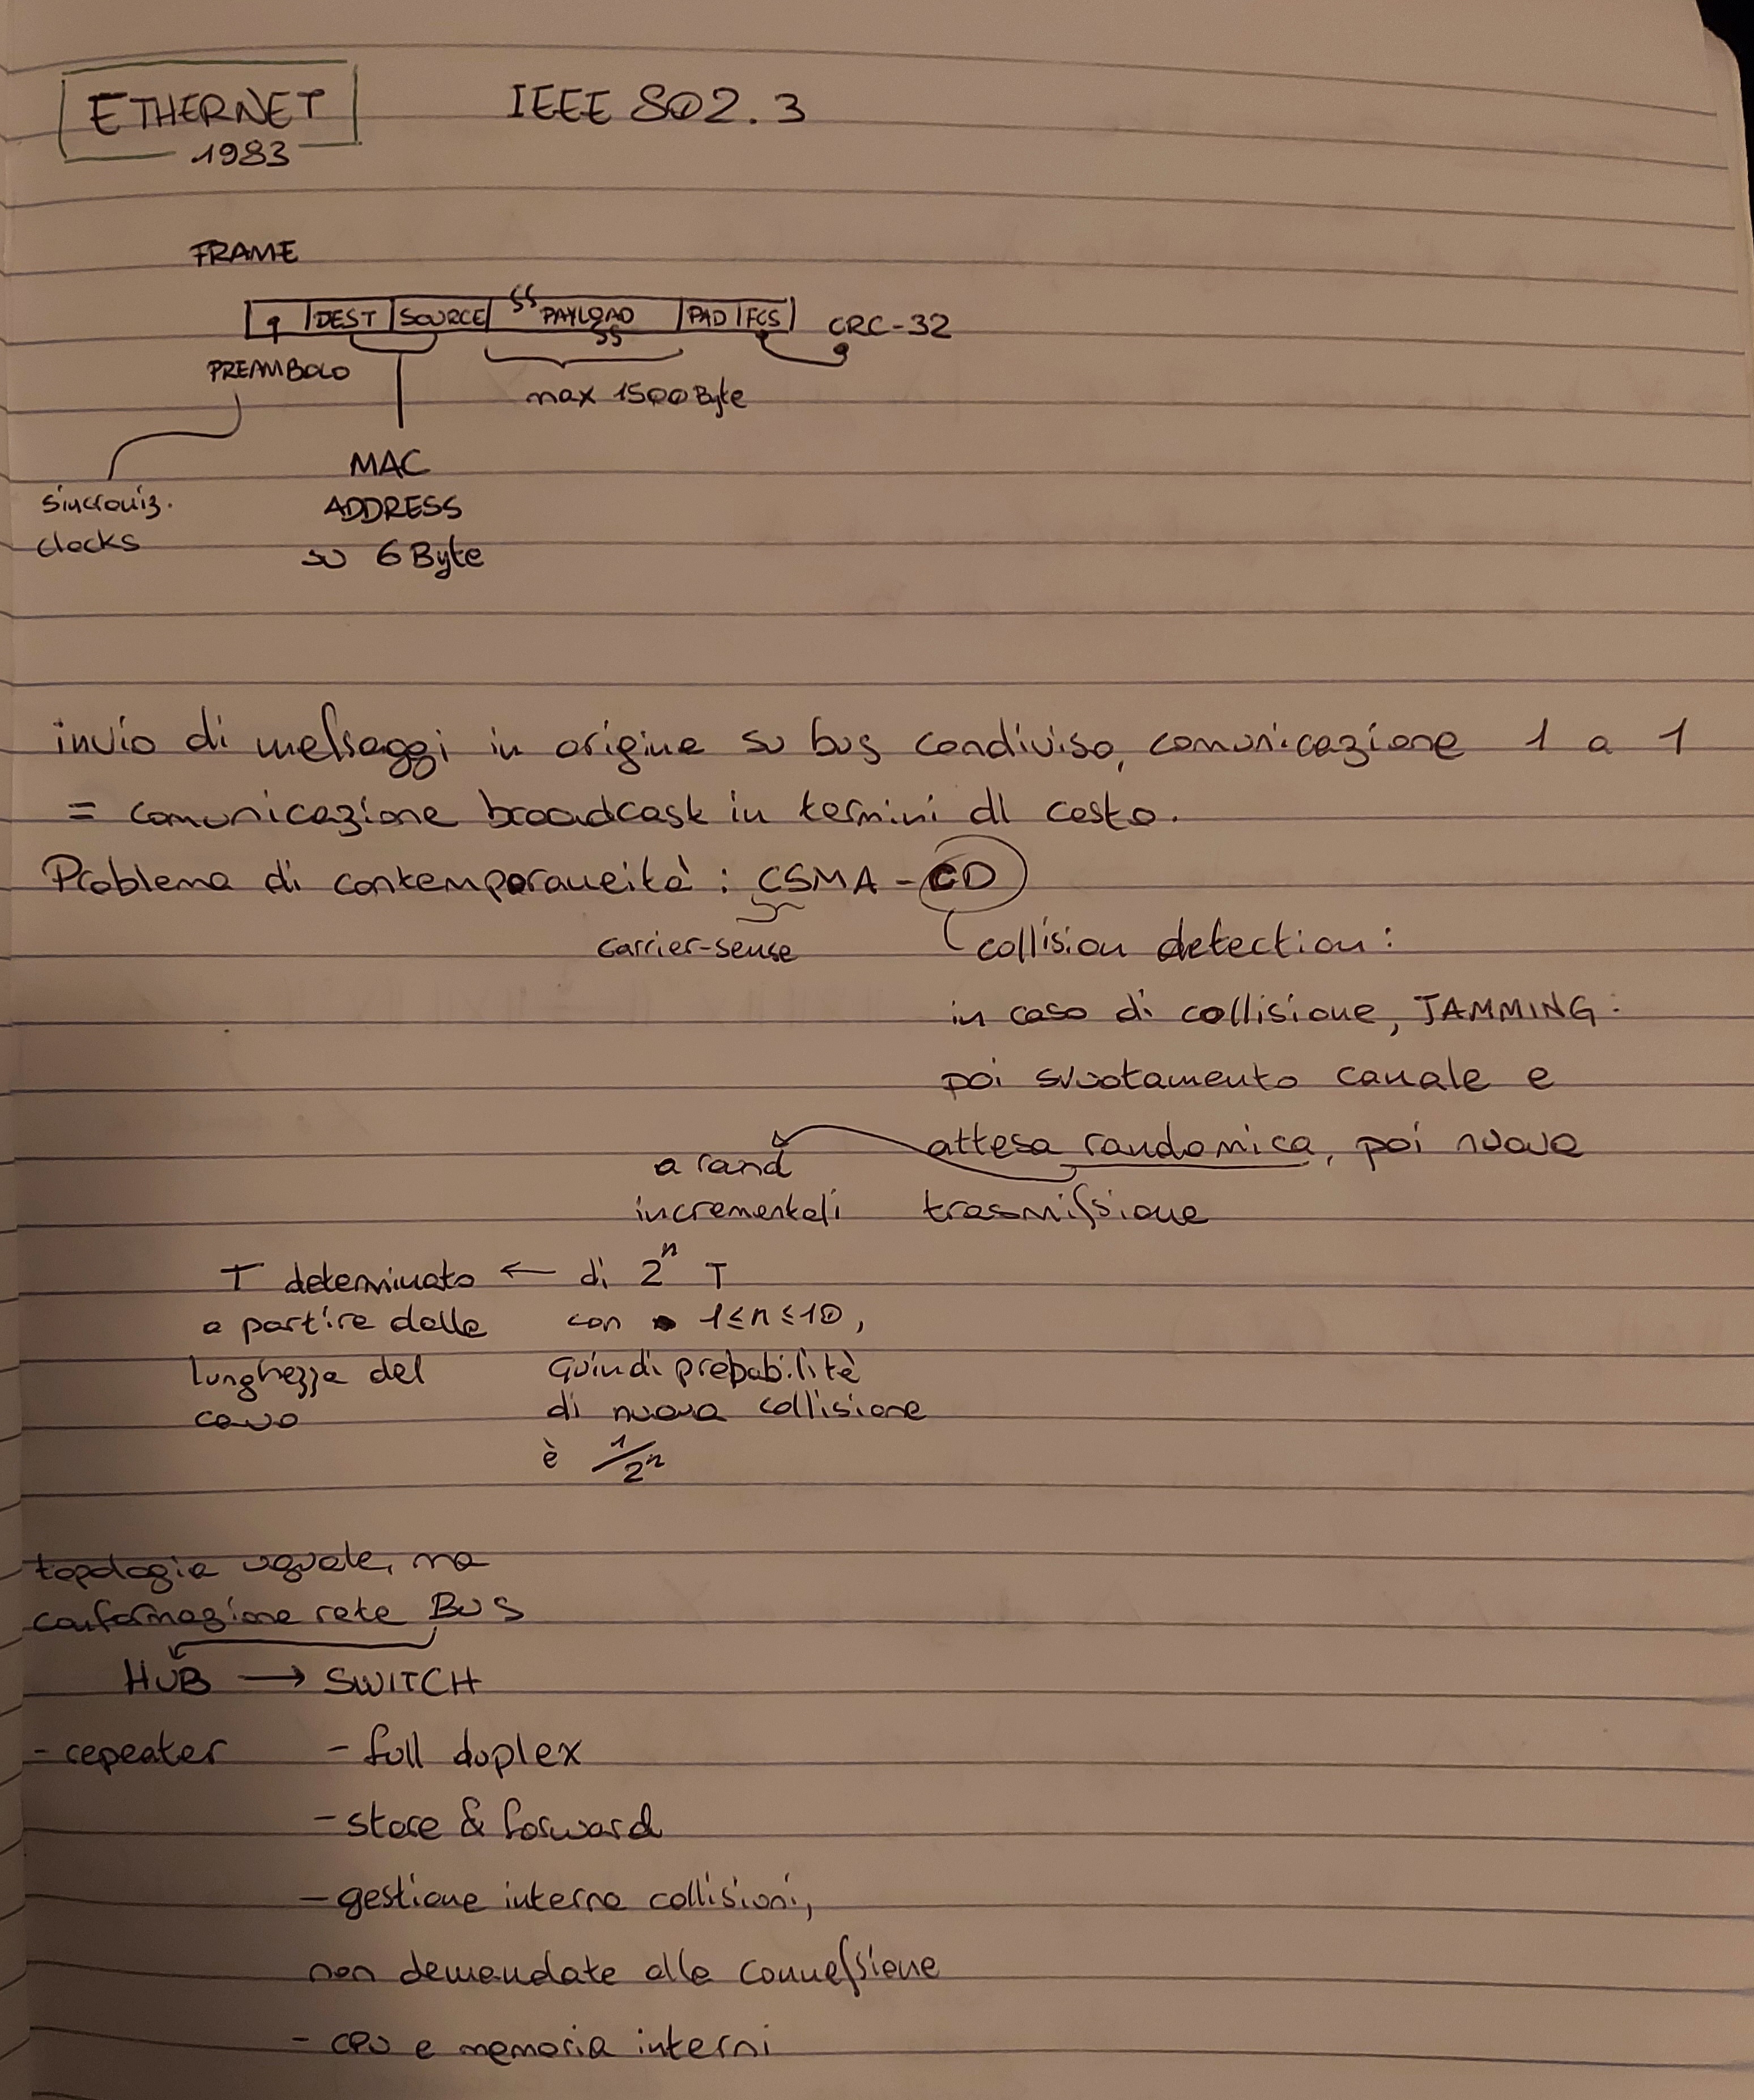 ETHERNET IEEE 802.3
1983
FRAME
DEST SOURCE PAYLOAD PAD FCS CRC-32
PREAMBOLO
max 1500 Byte
MAC
sincroniz. ADDRESS
clocks su 6 Byte
invio di messaggi in origine su bus condiviso, comunicazione 1 a 1
= comunicazione broadcast in termini di costo.
Problema di contemporaneità: CSMA-CD
carrier-sense collision detection:
in caso di collisione, JAMMING:
poi svuotamento canale e
attesa randomica, poi nuova
trasmissione
a rand
incrementali
di 2ⁿ T
con 1≤n≤10,
quindi probabilità
di nuova collisione
è 1/2ⁿ
T determinato
a partire dalla
lunghezza del
cavo
topologia uguale, ma
conformazione rete BUS
HUB → SWITCH
- repeater - full duplex
- store & forward
- gestione interna collisioni,
non demandate alla connessione
- cpu e memoria interni